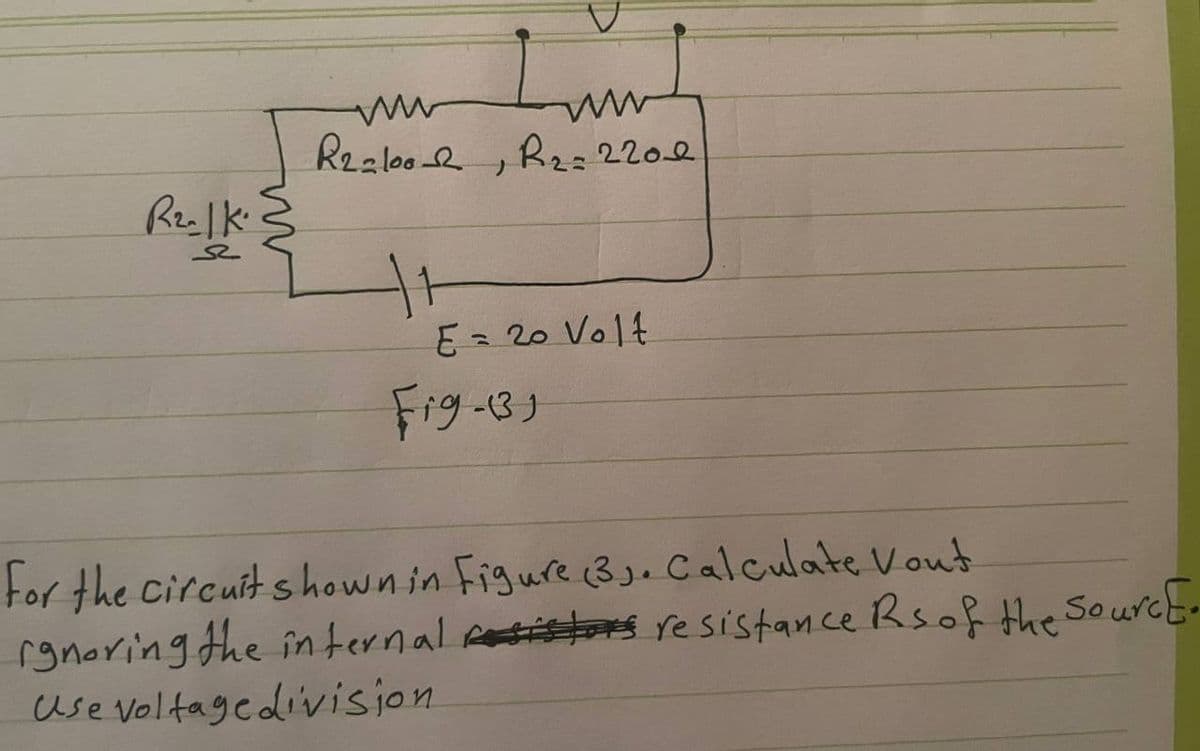 V
R2=100Ω , R2=220Ω
R2=1k.
Ω
E = 20 Volt
Fig-(3)
For the circuit shown in Figure (3). Calculate Vout
ignoring the internal resistance Rs of the SourcE.
use voltage division